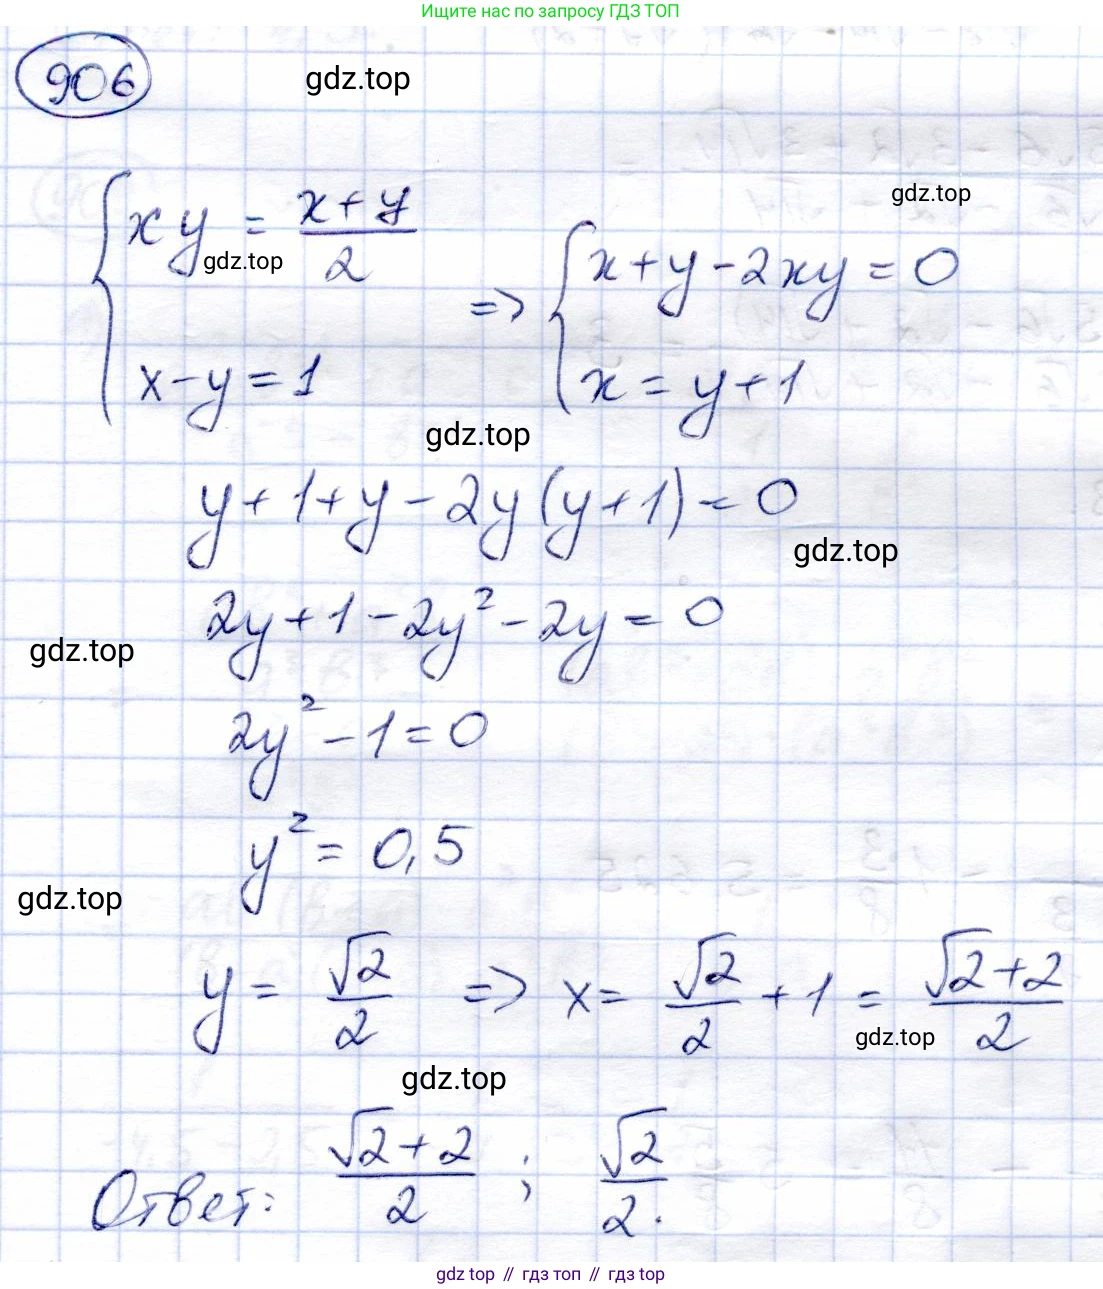 Ищите нас по запросу ГДЗ ТОП
906
gdz.top
gdz.top
xy = (x+y)/2
gdz.top
x-y=1
=> x+y-2xy=0
x=y+1
gdz.top
y+1+y-2y(y+1)=0
gdz.top
2y+1-2y²-2y=0
gdz.top
2y²-1=0
y²=0,5
gdz.top
y = √2/2 => x = √2/2 + 1 = (√2+2)/2
gdz.top
gdz.top
Ответ: (√2+2)/2 ; √2/2.
gdz top // гдз топ // gdz top